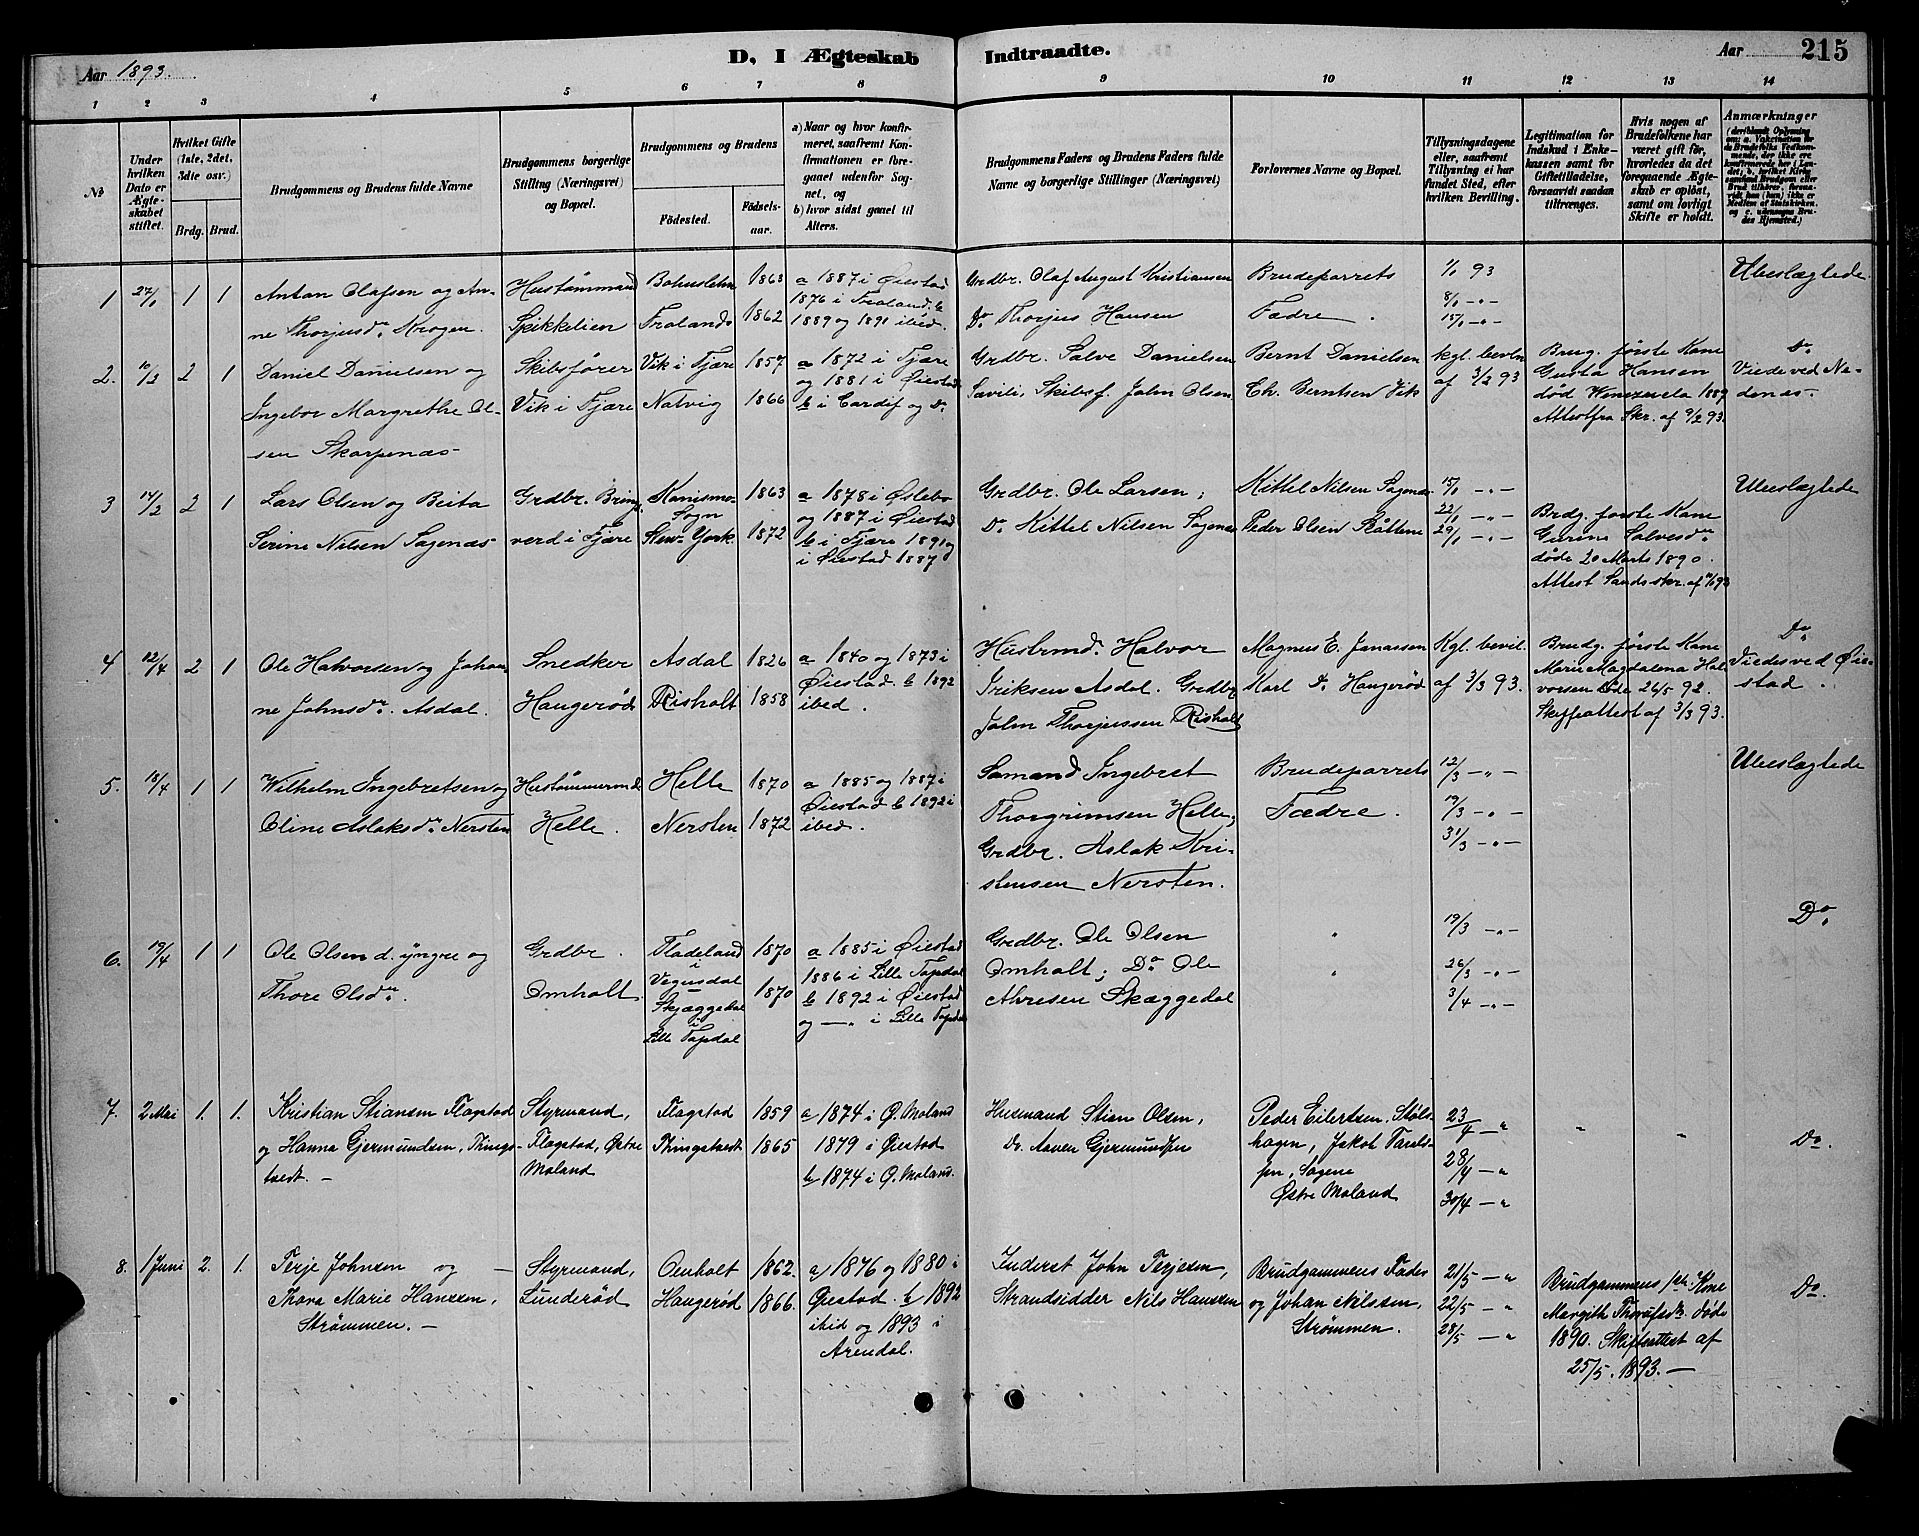 Aar 1893.
D, I Ægteskab Indtraadte.
Aar 215
1 2 3 4 5 6 7 8 9 10 11 12 13 14
№
Under hvilken Dato er Ægteskabet stiftet.
Hvilket Gifte (1ste, 2det, 3die osv.)
Brdg. Brud.
Brudgommens og Brudens fulde Navne
Brudgommens borgerlige Stilling (Næringsvei) og Bopæl.
Brudgommens og Brudens
Fødested.
Fødselsaar.
a) Naar og hvor konfirmeret, saafremt Konfirmationen er foregaaet udenfor Sognet, og
b) hvor sidst gaaet til Alters.
Brudgommens Faders og Brudens Faders fulde Navne og borgerlige Stillinger (Næringsvei)
Forlovernes Navne og Bopæl.
Tillysningsdagene eller, saafremt Tillysning ei har fundet Sted, efter hvilken Bevilling.
Legitimation for Indskud i Enkekassen samt for Giftetilladelse, forsaavidt saadan tiltrænges.
Hvis nogen af Brudefolkene har været gift før, hvorledes da det foregaaende Ægteskab er opløst, samt om lovligt Skifte er holdt.
Anmærkninger
1 27/1 1 1
Anton Olafsen og Anne Thorjusdr. Krogen.
Hustømmand Spikkelien
Bohuslehn 1863
Frolands 1862
a 1887 i Øiestad
1876 i Froland; b
1889 og 1891 ibed.
Grdbr. Olaf August Kristiansen
Do. Thorjus Hansen
Brudeparrets Fædre.
1/1 93
8/1 -"-
15/1 -"-
Ubeslægtede
2. 10/2 2 1
Daniel Danielsen og Ingebor Margrethe Olsen Skarpenæs
Skibsfører Vik i Fjære
Vik i Fjære 1857
Natvig 1866
a 1872 i Fjære
og 1881 i Øiestad
b i Cardif og Do.
Grdbr. Salve Danielsen
Savili, Skibsf. John Olsen
Bernt Danielsen
Ch. Berntsen Vik
kgl. bevln
af 3/2 93
Brug. første Kone
Gusta Hansen
død Wenezuela 1889
Attest fra Skr. af 9/2 93.
Do.
Viede ved Nedenæs-
3 14/2 2 1
Lars Olsen og Beita Serine Nilsen Sagenæs
Grdbr. Bringsverd i Fjære
Sogn 1863
New York. 1872
a 1878 i Øslebo
og 1887 i Øiestad
b i Fjære 1891 og
i Øiestad 1887
Grdbr. Ole Larsen;
Do. Kittel Nilsen Sagenæs
Kittel Nilsen Sagenæs
Peder Olsen
15/1 -"-
22/1 -"-
29/1 -"-
Brdg. første Kone
Gurine Salvesdr.
døde 20 Marts 1890.
Attest Sandsskr. af
Ubeslægtede
4 12/4 2 1
Ole Halvorsen og Johanne Johnsdr. Asdal.
Snedker Haugerød
Asdal 1826
Risholt 1858
a 1840 og 1873 i
Øiestad. b 1892
ibed.
Husbmd. Halvor
Iriksen Asdal. Grdbr.
John Thorjussen Risholt
Magnus E. Jonassen
Karl Do. Haugerød
Kgl. bevil.
af 3/3 93.
Brudg. første Kone
Marie Magdalena Halvorsen døde 26/5 92.
Skifteattest af 3/3 93.
Do.
Viedes ved Øiestad.
5. 18/4 1 1
Wilhelm Ingebretsen og
Oline Aslaksdr. Nersten
Hustømmermd Helle.
Helle 1870
Nersten 1872
a 1885 og 1887 i
Øiestad b 1892 i
ibed.
Somand Ingebret
Thorgrimsen Helle;
Grdbr. Aslak Kristensen Nersten.
Brudeparrets Fædre.
12/3 -"-
19/3 -"-
31/3 -"-
Ubeslægtede
6. 19/4 1 1
Ole Olsen d. yngre og
Thore Olsdr.
Grdbr. Omholt.
Fladeland i Vegusdal 1870
Skjæggedal i Lille Topdal 1870
a 1885 i Øiestad
1886 i Lille Topdal
b 1892 i Øiestad
og -"- i Lille Topdal
Grdbr. Ole Olsen
Omholt; Do. Ole
Skæggedal
19/3 -"-
26/3 -"-
3/4 -"-
Do.
7. 2 Mai 1. 1.
Kristian Stiansen Flagstad
og Hanna Gjermundsen, Thingstvedt. -
Styrmand, Flagstad, Østre Moland
Flagstad 1859
Thingstvedt 1865
a 1874 i Ø. Moland
1879 i Øiestad
b 1874 i Ø. Moland.
Husmand Stian Olsen,
do. Aaven Gjermundsen
Peder Eilertsen, Stølshagen, Jakob Taralsen, Sagene
Østre Moland
23/4 -"
28/4 -"
30/4 -"
Do.
8. 1 Juni 2. 1.
Terje Johnsen og -
Thora Marie Hanssen, Strømmen. -
Styrmand, Lunderød
Omholt 1862.
Haugerød 1866.
a) 1876 og 1880 i
Øiestad. b) 1892
ibid og 1893 i
Arendal.
Inderst John Terjesen,
Strandsidder Nils Hanssen
Brudgammens Fader
og Johan Nilssen, Strømmen.
21/5 -"
22/5 -"
28/5 -"
Brudgammens 1ste Kone
Margith døde
1890. Skifteattest af
25/5. 1893. -
Do.